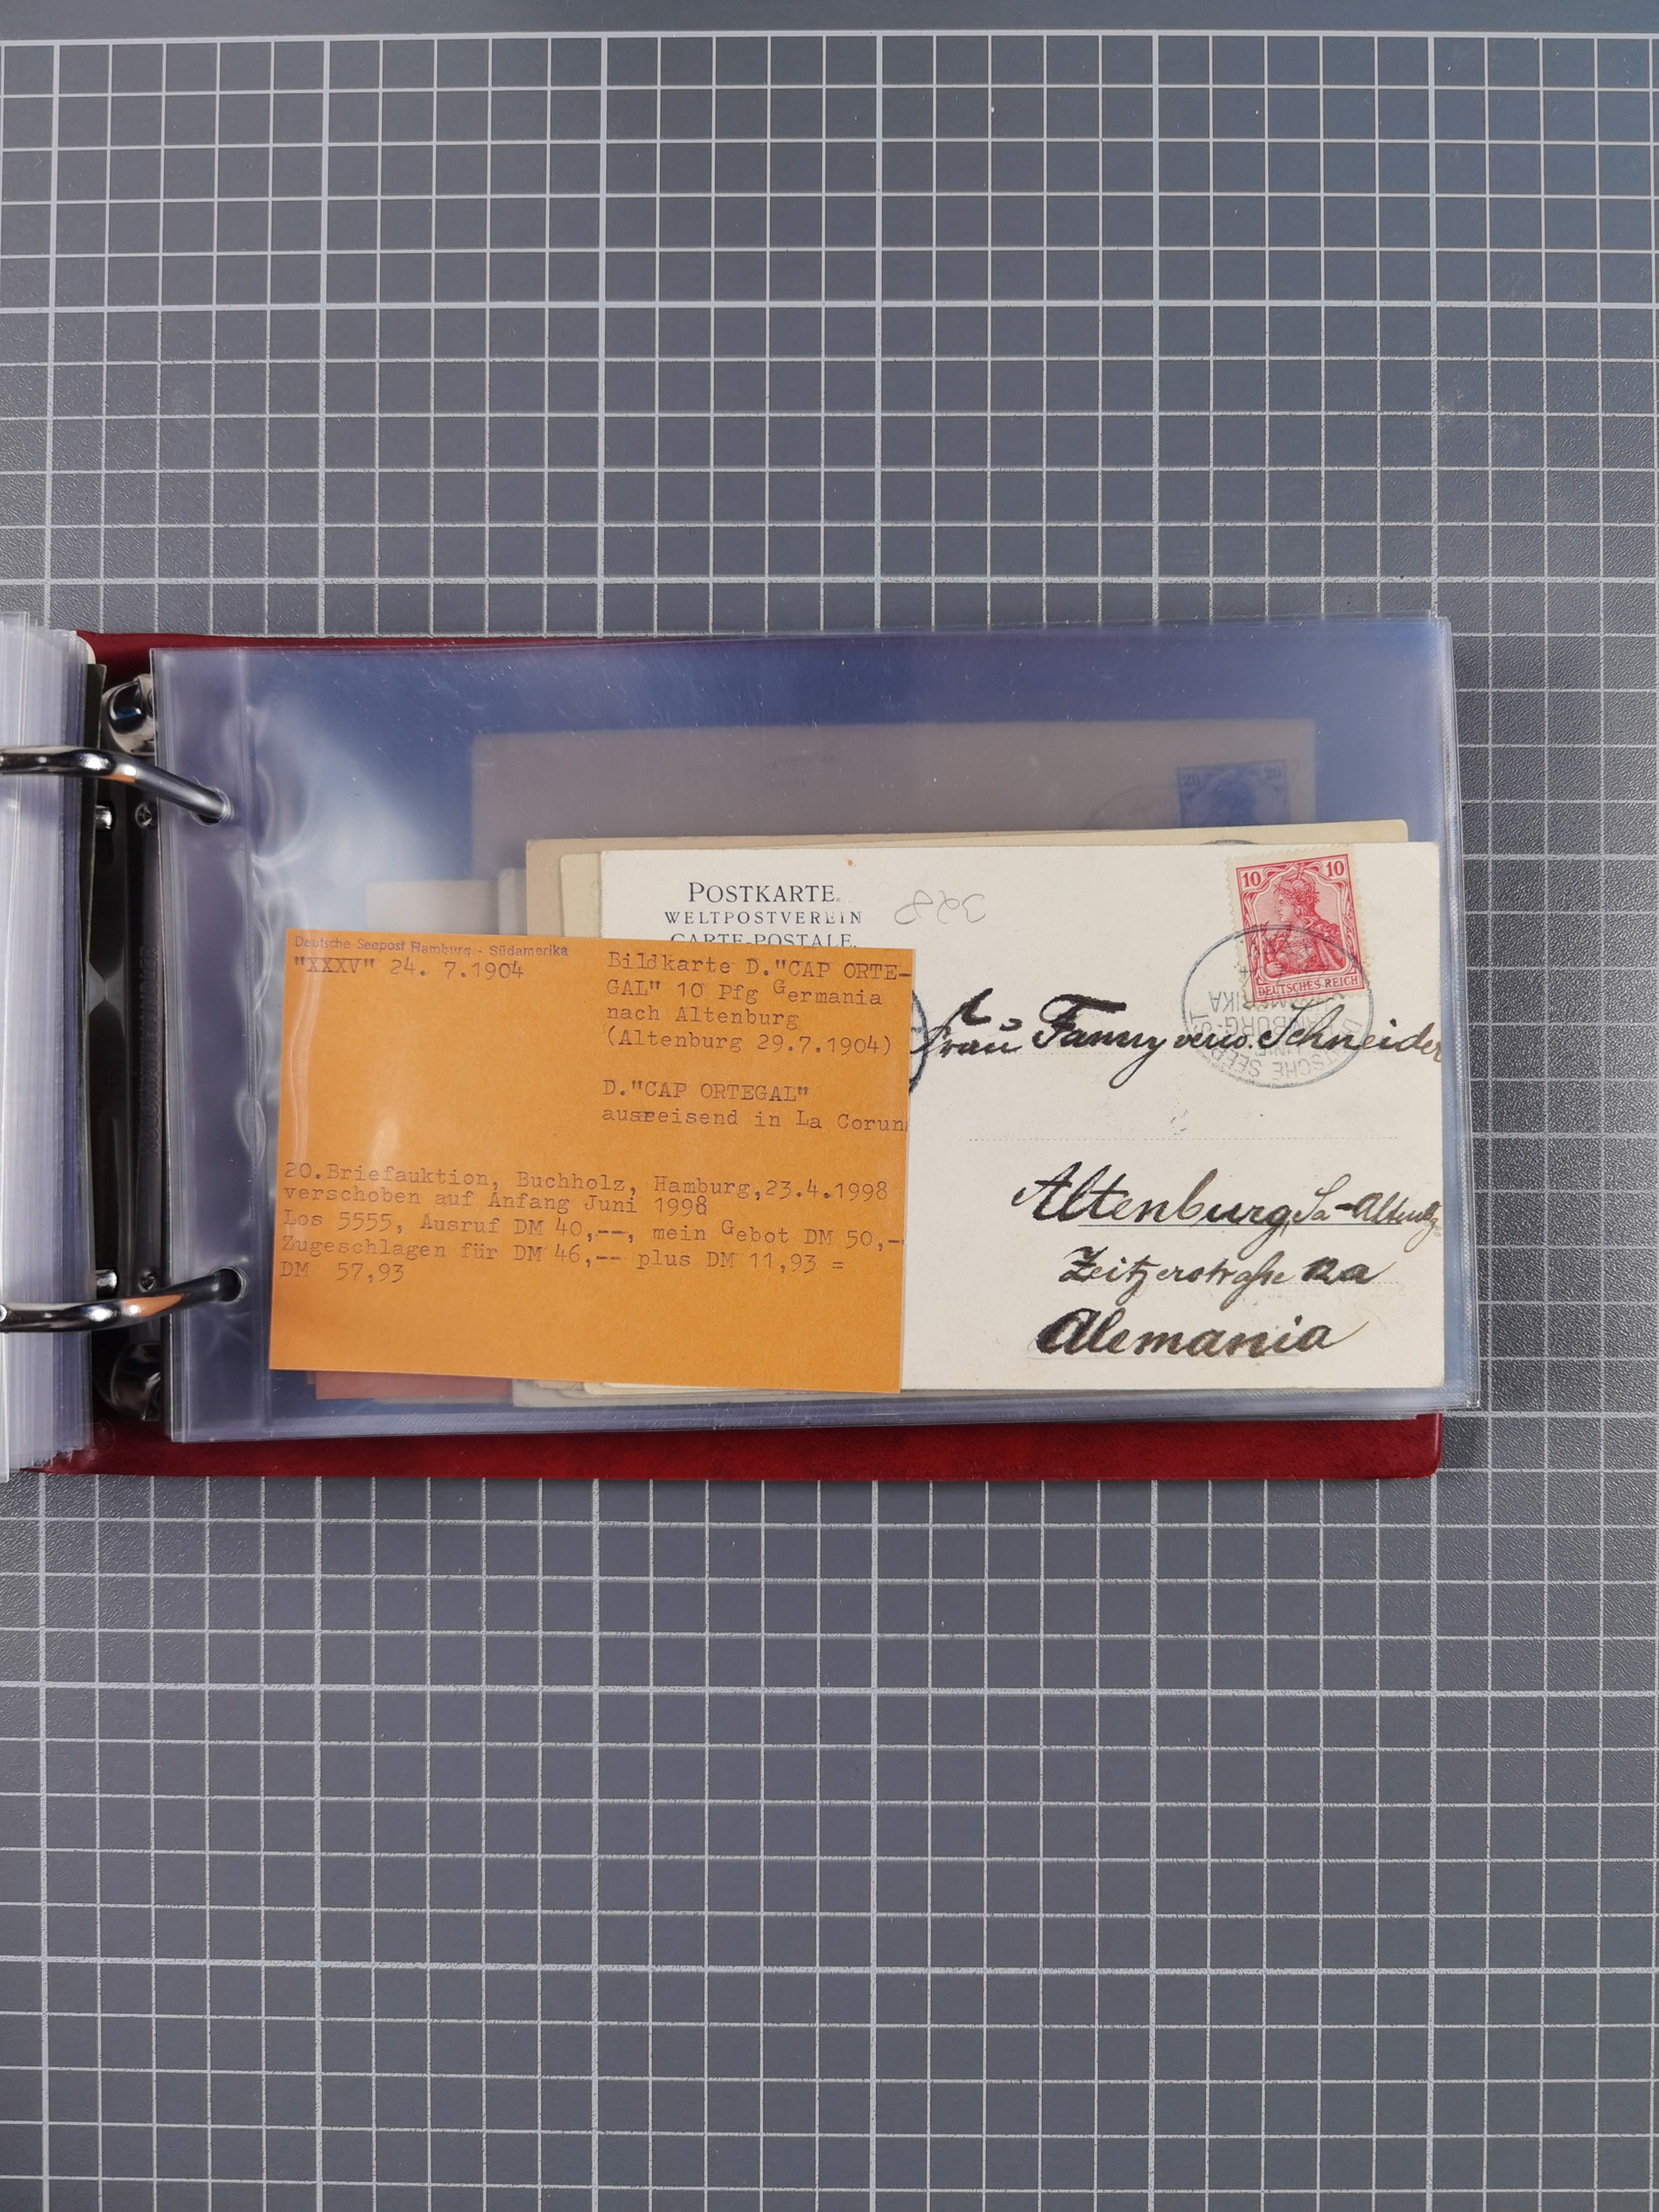 POSTKARTE.
WELTPOSTVEREIN
CARTE-POSTALE.
328
10 10
DEUTSCHES REICH
20 20
DEUTSCHE SEEPOST
HAMBURG-
AMERIKA
Frau Fanny verw. Schneider
Altenburg, Sa-Altenbg.
Zeitzerstraße 12a
Alemania
Deutsche Seepost Hamburg - Südamerika
"XXXV" 24. 7.1904
Bildkarte D."CAP ORTE-
GAL" 10 Pfg Germania
nach Altenburg
(Altenburg 29.7.1904)
D."CAP ORTEGAL"
ausreisend in La Corun
20.Briefauktion, Buchholz, Hamburg,23.4.1998
verschoben auf Anfang Juni 1998
Los 5555, Ausruf DM 40,--, mein Gebot DM 50,-
Zugeschlagen für DM 46,-- plus DM 11,93 =
DM 57,93